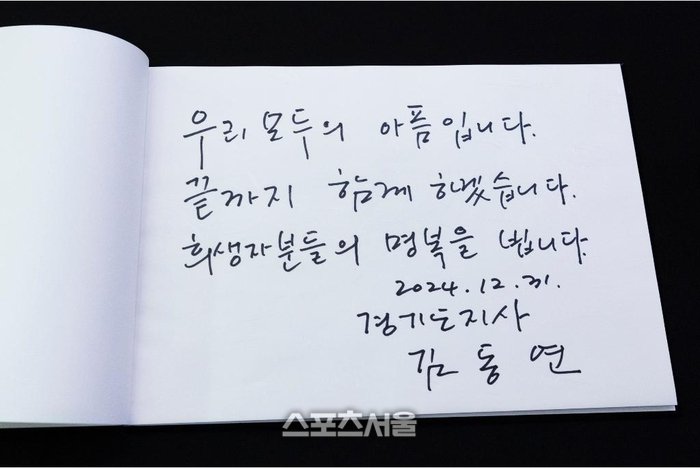 우리 모두의 아픔입니다.
끝까지 함께 하겠습니다.
희생자분들의 명복을 빕니다.
2024. 12. 31.
경기도지사
김 동 연
스포츠서울